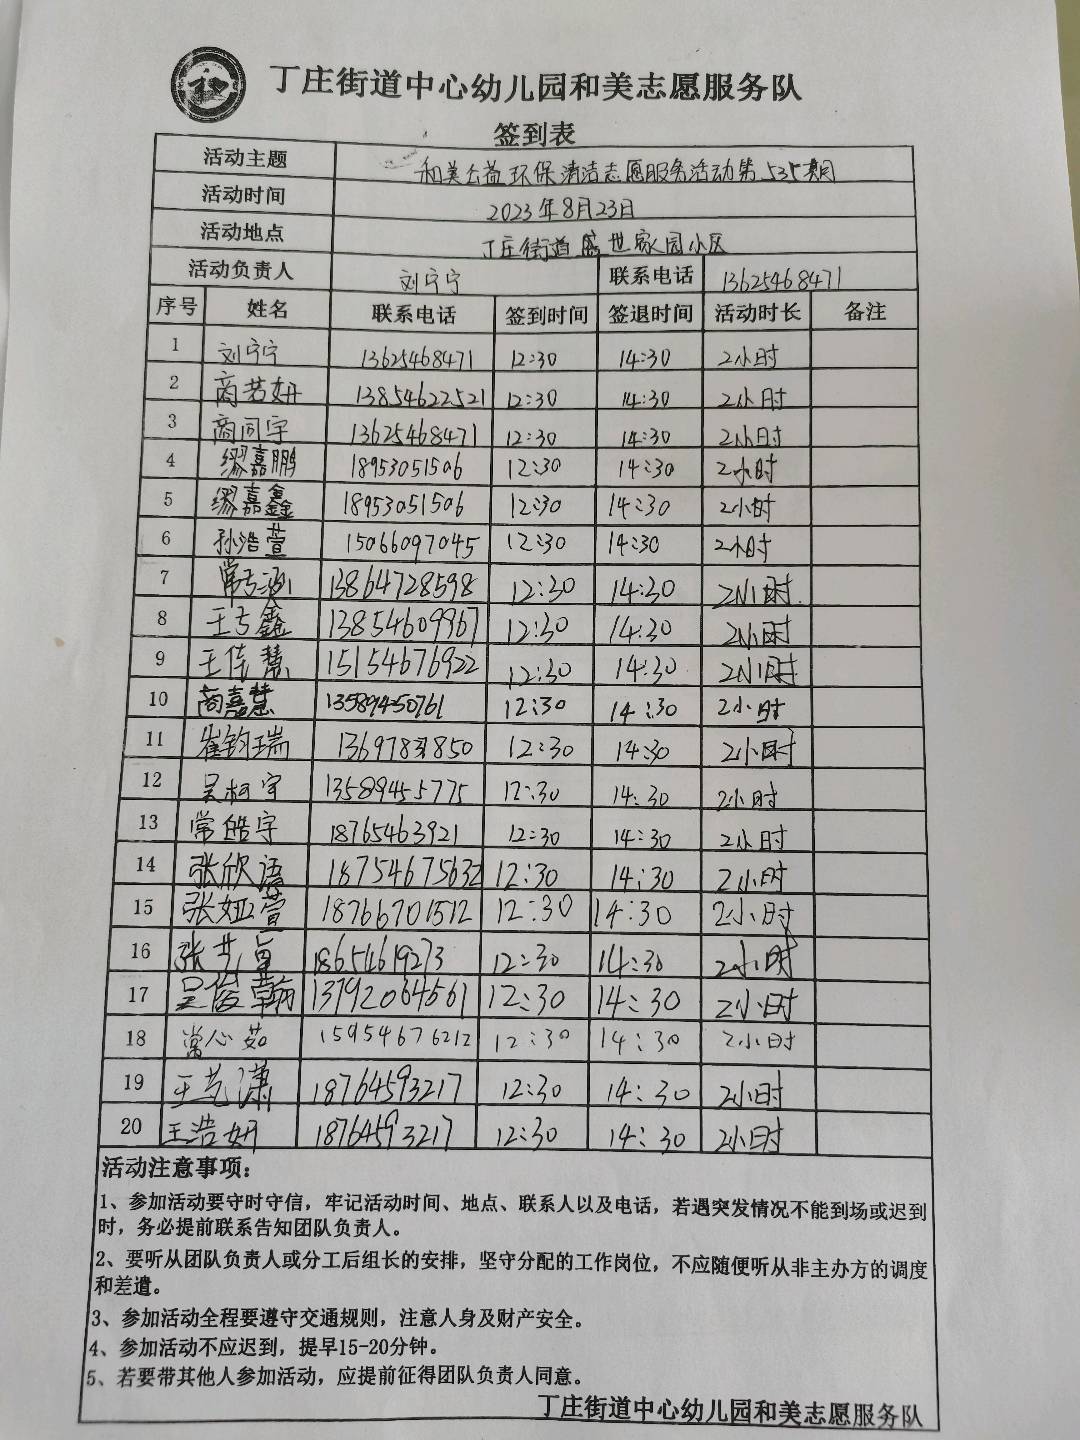 丁庄街道中心幼儿园和美志愿服务队
签到表
活动主题 和美公益环保清洁志愿服务活动第535期
活动时间 2023年8月23日
活动地点 丁庄街道盛世家园小区
活动负责人 刘宁宁 联系电话 13625468471
序号 姓名 联系电话 签到时间 签退时间 活动时长 备注
1 刘宁宁 13625468471 12:30 14:30 2小时
2 商若妍 13854622521 12:30 14:30 2小时
3 商同宇 13625468471 12:30 14:30 2小时
4 缪嘉鹏 18953051506 12:30 14:30 2小时
5 缪嘉鑫 18953051506 12:30 14:30 2小时
6 孙浩萱 15066097045 12:30 14:30 2小时
7 13864728598 12:30 14:30 2小时
8 王 鑫 13854609967 12:30 14:30 2小时
9 王佳慧 15154676922 12:30 14:30 2小时
10 商嘉慧 13589450761 12:30 14:30 2小时
11 崔钧瑞 12:30 14:30 2小时
12 吴柯宇 13589455775 12:30 14:30 2小时
13 常皓宇 18765463921 12:30 14:30 2小时
14 张欣语 18754675632 12:30 14:30 2小时
15 张娅萱 18766701512 12:30 14:30 2小时
16 张艺 18654619273 12:30 14:30 2小时
17 吴俊翰 13792064561 12:30 14:30 2小时
18 常心茹 15954676212 12:30 14:30 2小时
19 王艺潇 18764593217 12:30 14:30 2小时
20 王浩妍 18764593217 12:30 14:30 2小时
活动注意事项：
1、参加活动要守时守信，牢记活动时间、地点、联系人以及电话，若遇突发情况不能到场或迟到
时，务必提前联系告知团队负责人。
2、要听从团队负责人或分工后组长的安排，坚守分配的工作岗位，不应随便听从非主办方的调度
和差遣。
3、参加活动全程要遵守交通规则，注意人身及财产安全。
4、参加活动不应迟到，提早15-20分钟。
5、若要带其他人参加活动，应提前征得团队负责人同意。
丁庄街道中心幼儿园和美志愿服务队